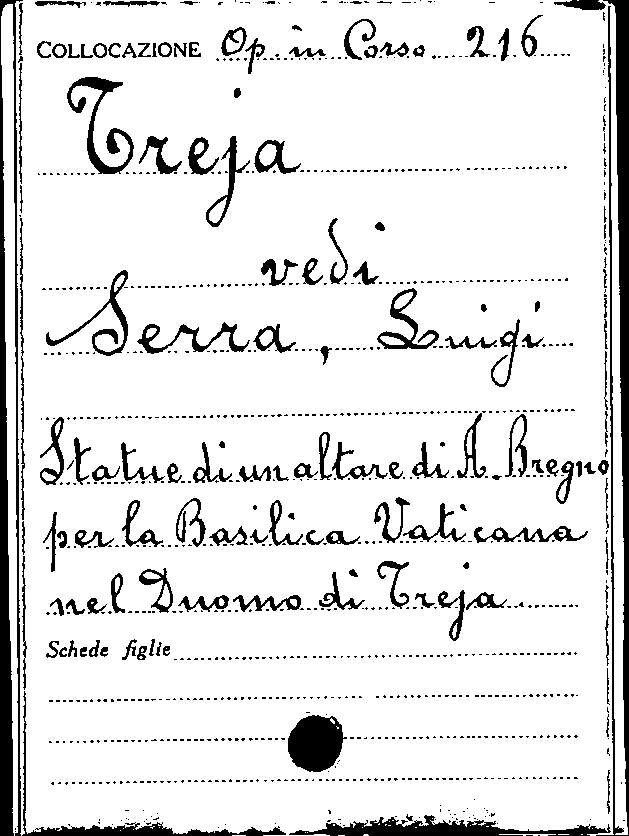 COLLOCAZIONE Op. in Corso. 216
Treja
vedi
Serra, Luigi
Statue di un altare di A. Bregno
per la Basilica Vaticana
nel Duomo di Treja
Schede figlie